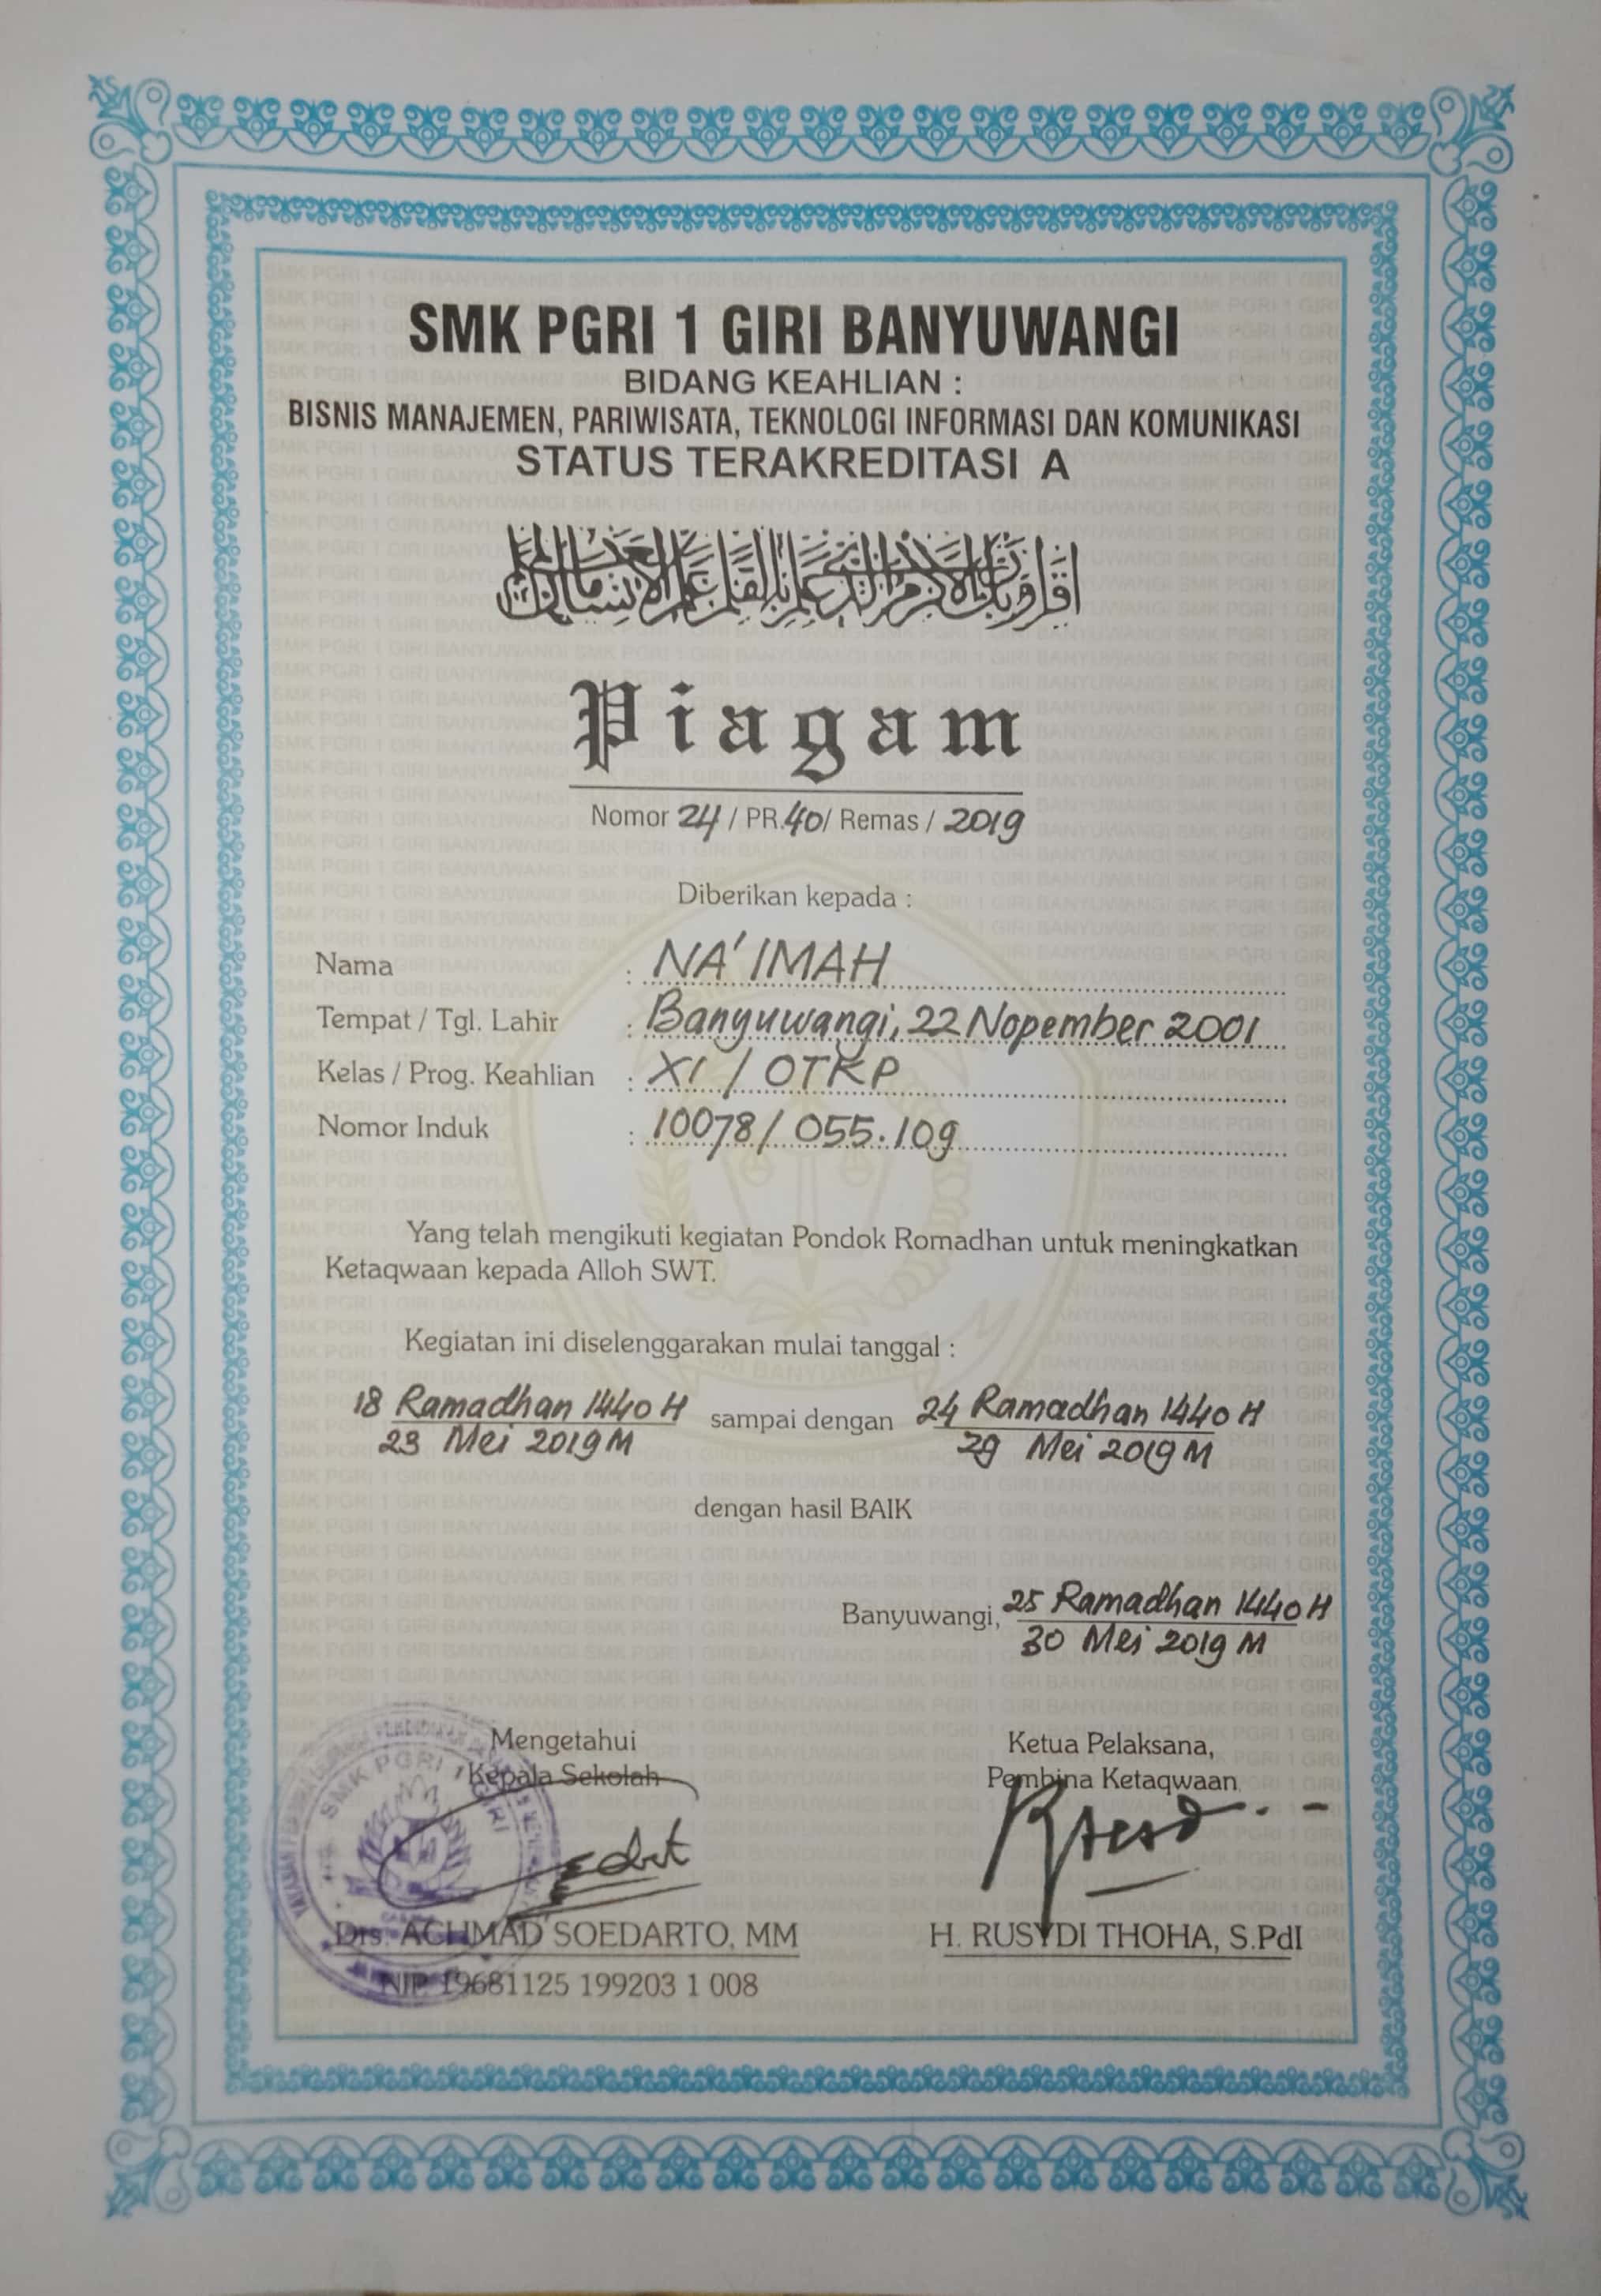 SMK PGRI 1 GIRI BANYUWANGI
BIDANG KEAHLIAN :
BISNIS MANAJEMEN, PARIWISATA, TEKNOLOGI INFORMASI DAN KOMUNIKASI
STATUS TERAKREDITASI A
اقرأ وربك الأكرم الذي علم بالقلم علم الإنسان ما لم يعلم
Piagam
Nomor 24 / PR.40/ Remas / 2019
Diberikan kepada :
Nama : NA'IMAH
Tempat / Tgl. Lahir : Banyuwangi, 22 Nopember 2001
Kelas / Prog. Keahlian : XI / OTKP
Nomor Induk : 10078 / 055.109
Yang telah mengikuti kegiatan Pondok Romadhan untuk meningkatkan
Ketaqwaan kepada Alloh SWT.
Kegiatan ini diselenggarakan mulai tanggal :
18 Ramadhan 1440 H sampai dengan 24 Ramadhan 1440 H
23 Mei 2019 M 29 Mei 2019 M
dengan hasil BAIK
Banyuwangi, 25 Ramadhan 1440 H
30 Mei 2019 M
Mengetahui Ketua Pelaksana,
Kepala Sekolah Pembina Ketaqwaan
SMK PGRI 1 GIRI
Drs. ACHMAD SOEDARTO, MM H. RUSYDI THOHA, S.PdI
NIP. 19681125 199203 1 008